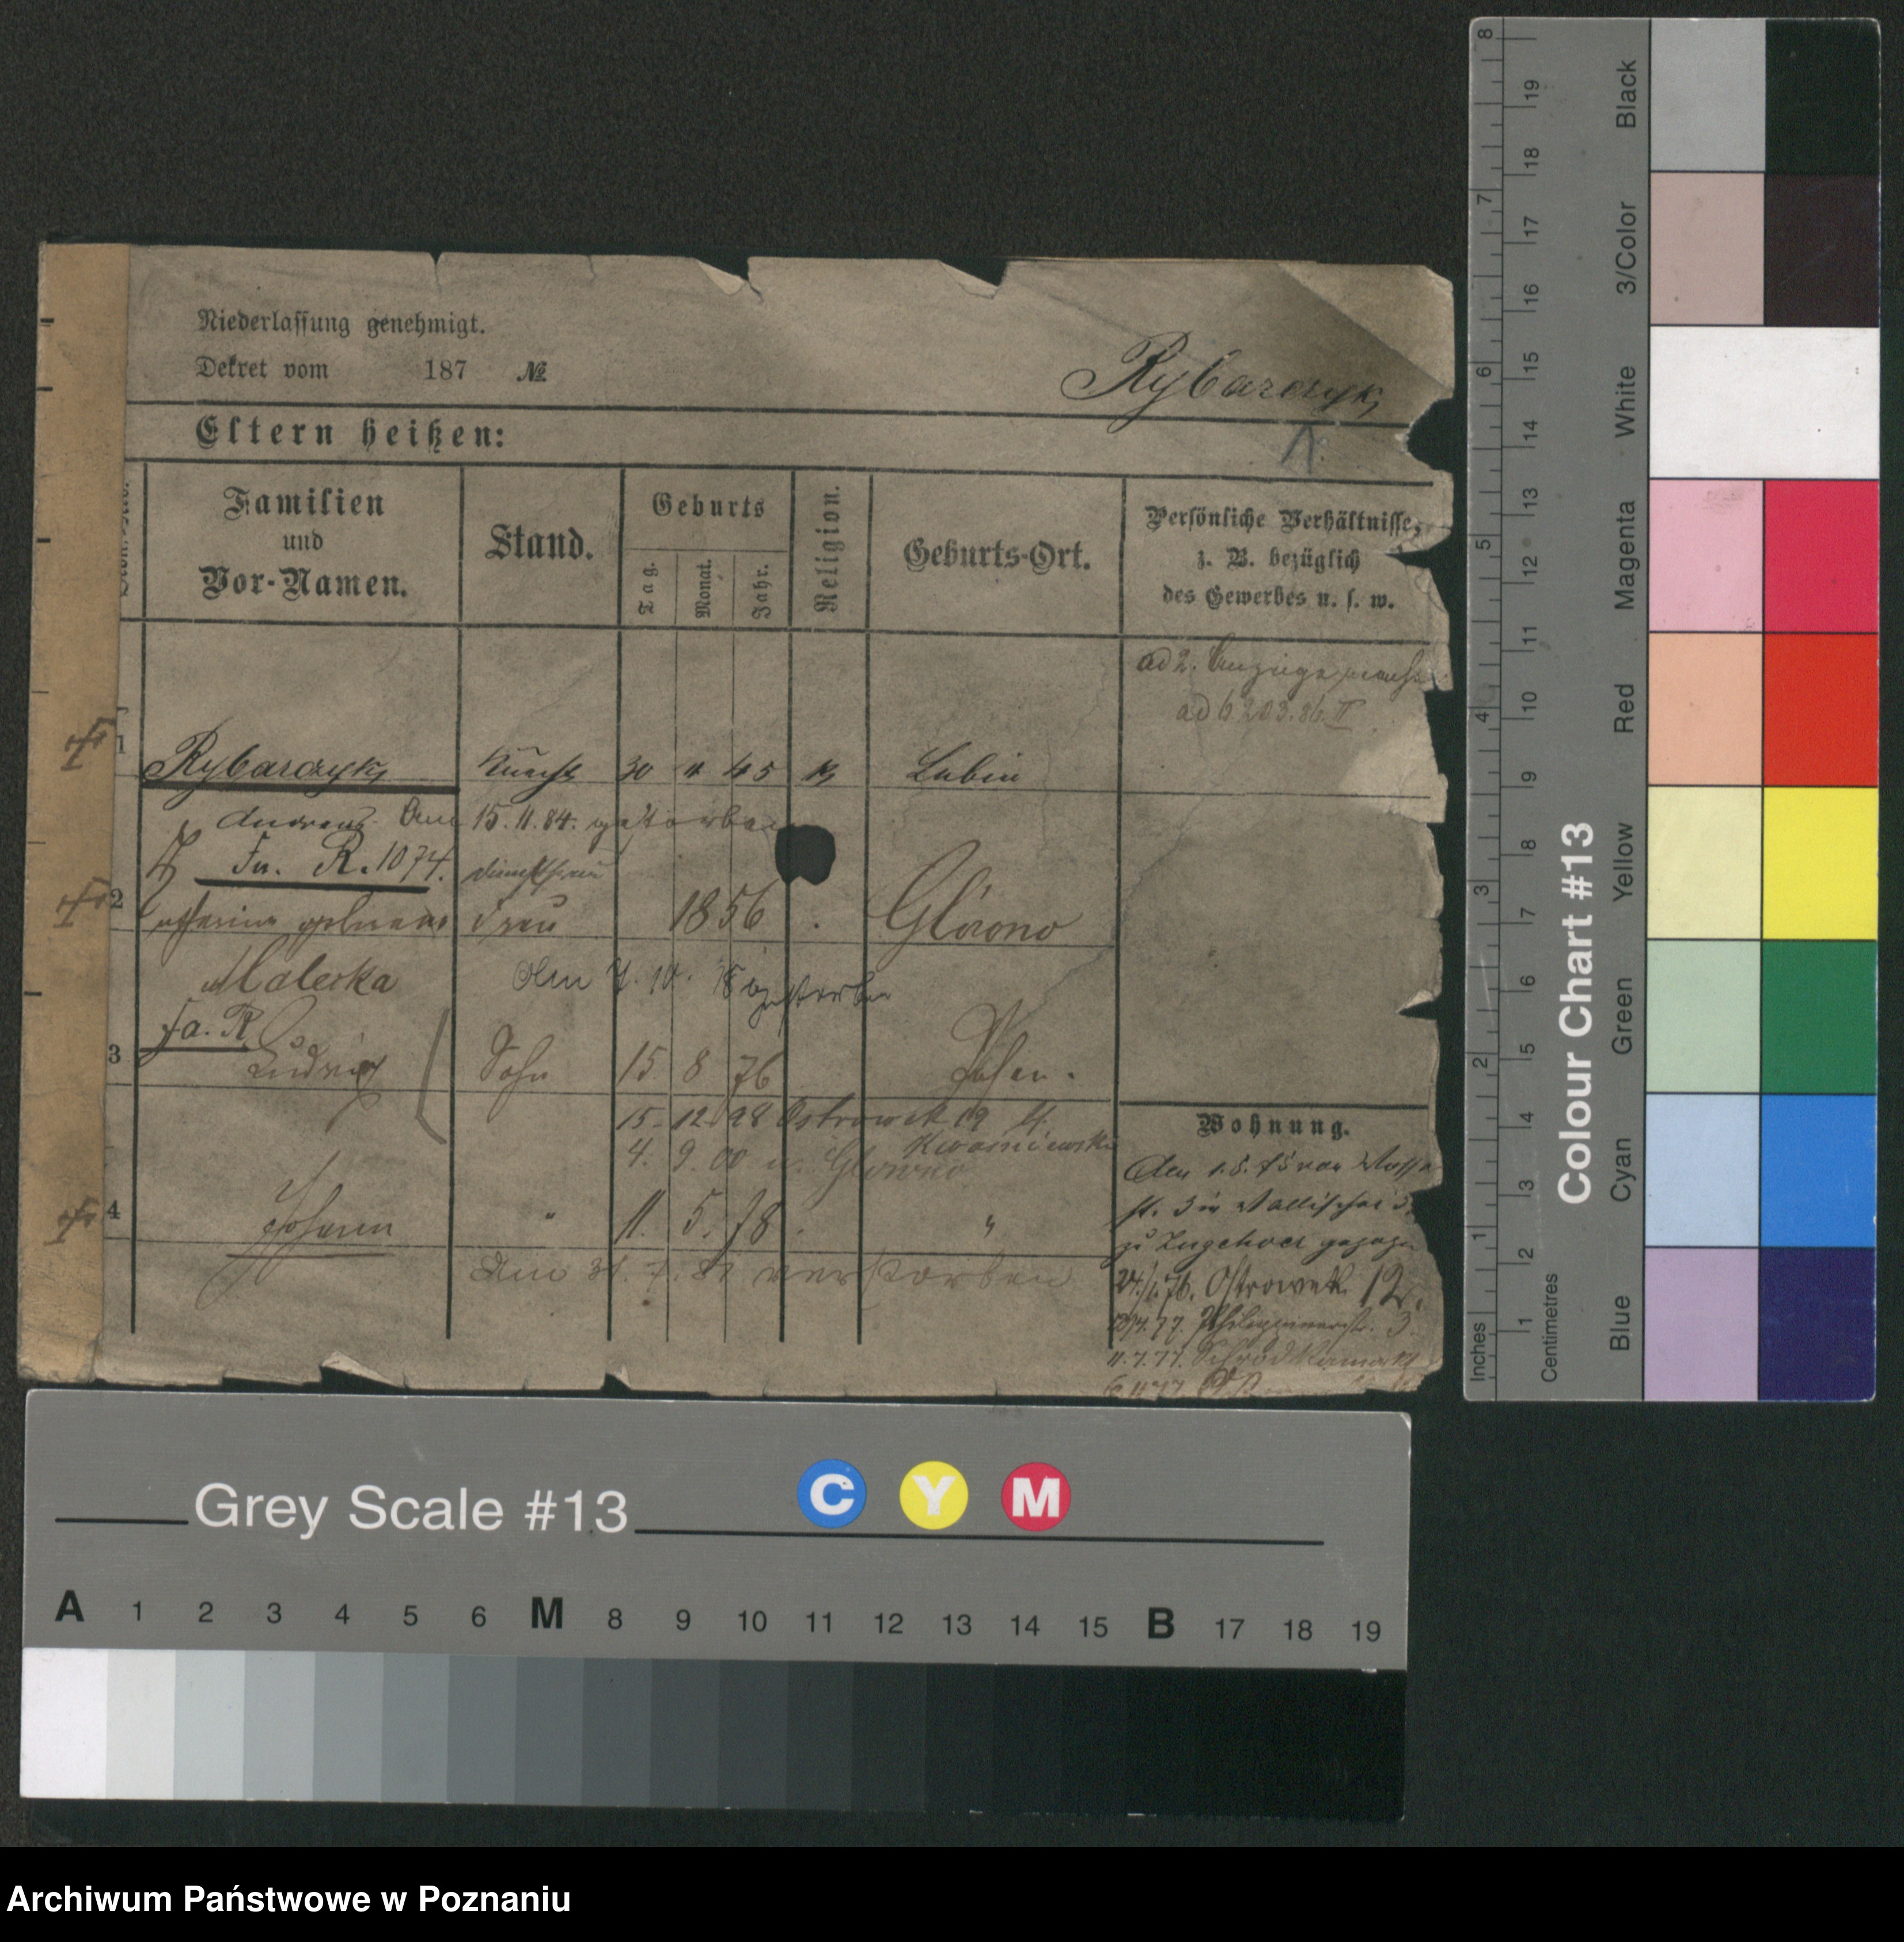 Niederlassung genehmigt.
Dekret vom 187 №
Rybarczyk
Eltern heißen:
Familien
und
Vor-Namen.
Stand.
Geburts
Tag.
Monat.
Jahr.
Religion.
Geburts-Ort.
Persönliche Verhältnisse,
z. B. bezüglich
des Gewerbes u. s. w.
ad 2.
ad 6 203.86. II
1 Rybarczyk Knecht 30 11 45 k Lubin
Andreas Am 15.11.84. gestorben
Fr. R. 1074.
2 Catharina geborene Frau 1856 Glówno
Malecka Am gestorben
fa. R
3 Ludwig Sohn 15 8 76 Posen.
15. 12 98 Ostrowek 19
Kwasniewski
4. 9. 00 n. Glowno
4 Johann " 11. 5. 78. "
Am 31. 7. verstorben
Wohnung.
Den 1.5.75 von
st. 3 in Wallischei 3.
zu
24./1.76. Ostrowek 12.
77. Philippinenstr. 3.
11.7.77. Schrodkamarkt
Grey Scale #13
C Y M
A 1 2 3 4 5 6 M 8 9 10 11 12 13 14 15 B 17 18 19
Colour Chart #13
Blue Cyan Green Yellow Red Magenta White 3/Color Black
Inches 1 2 3 4 5 6 7 8
Centimetres 1 2 3 4 5 6 7 8 9 10 11 12 13 14 15 16 17 18 19
Archiwum Państwowe w Poznaniu